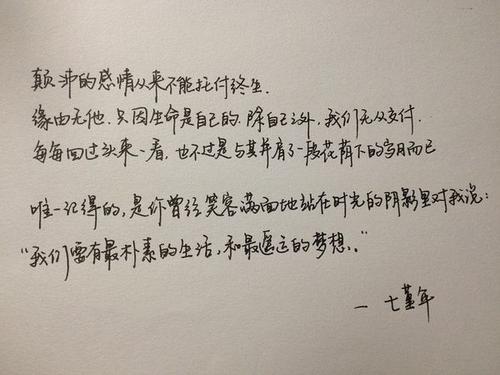 颠沛的感情从来不能托付终生.
缘由无他.只因生命是自己的.除自己之外,我们无从交付.
每每回过头来一看,也不过是与其并有了一段花荫下的岁月而已
唯一记得的,是你曾经笑容满面地站在时光的阴影里对我说:
“我们要有最朴素的生活,和最遥远的梦想.”
—七堇年